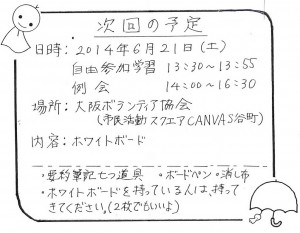 次回の予定
日時：2014年6月21日(土)
自由参加学習 13:30～13:55
例会 14:00～16:30
場所：大阪ボランティア協会
(市民活動スクエアCANVAS谷町)
内容：ホワイトボード
・要約筆記七つ道具 ・ボードペン・消し布
・ホワイトボードを持っている人は、持って
きてください。(2枚でもいいよ)